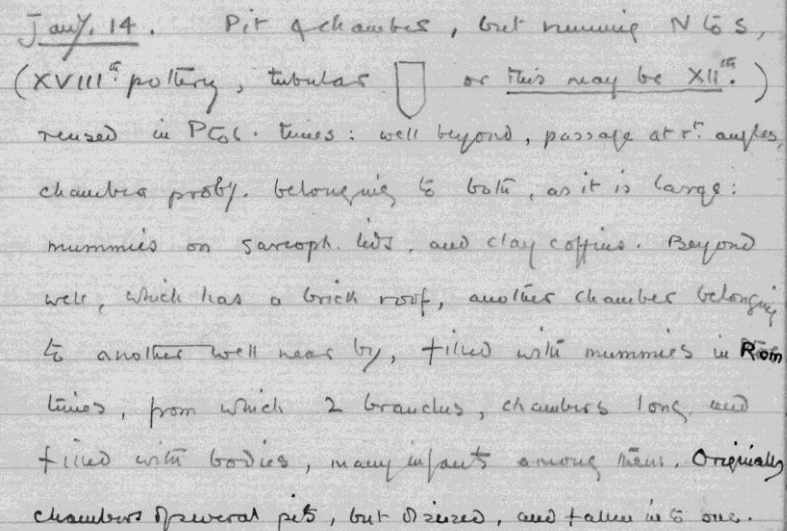 Jany. 14. Pit & chamber, but running N to S,
(XVIIIth pottery, tubular or this may be XIIth.)
reused in Ptol. times: well beyond, passage at rt. angles,
chamber proby. belonging to both, as it is large:
mummies on sarcoph. lids, and clay coffins. Beyond
well, which has a brick roof, another chamber belonging
to another well near by, filled with mummies in Rom
times, from which 2 branches, chambers long and
filled with bodies, many infants among them. Originally
chambers of several pits, but disused, and taken into one.